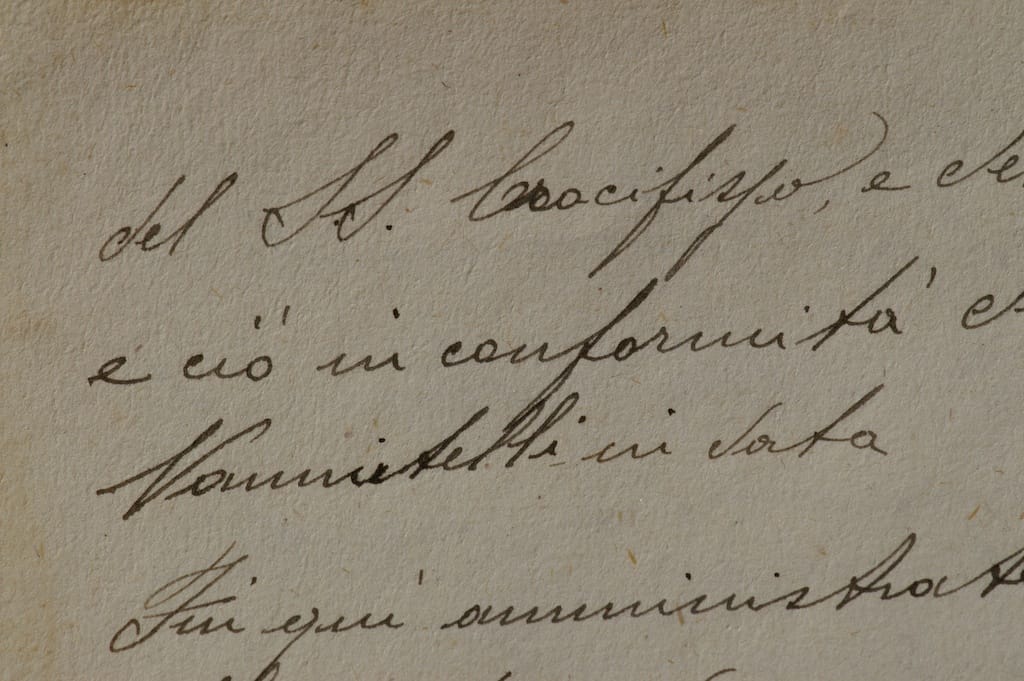 del S.S. Crocifisso, e de
e ciò in conformità d
Vannutelli in data
Fin qui amministrat